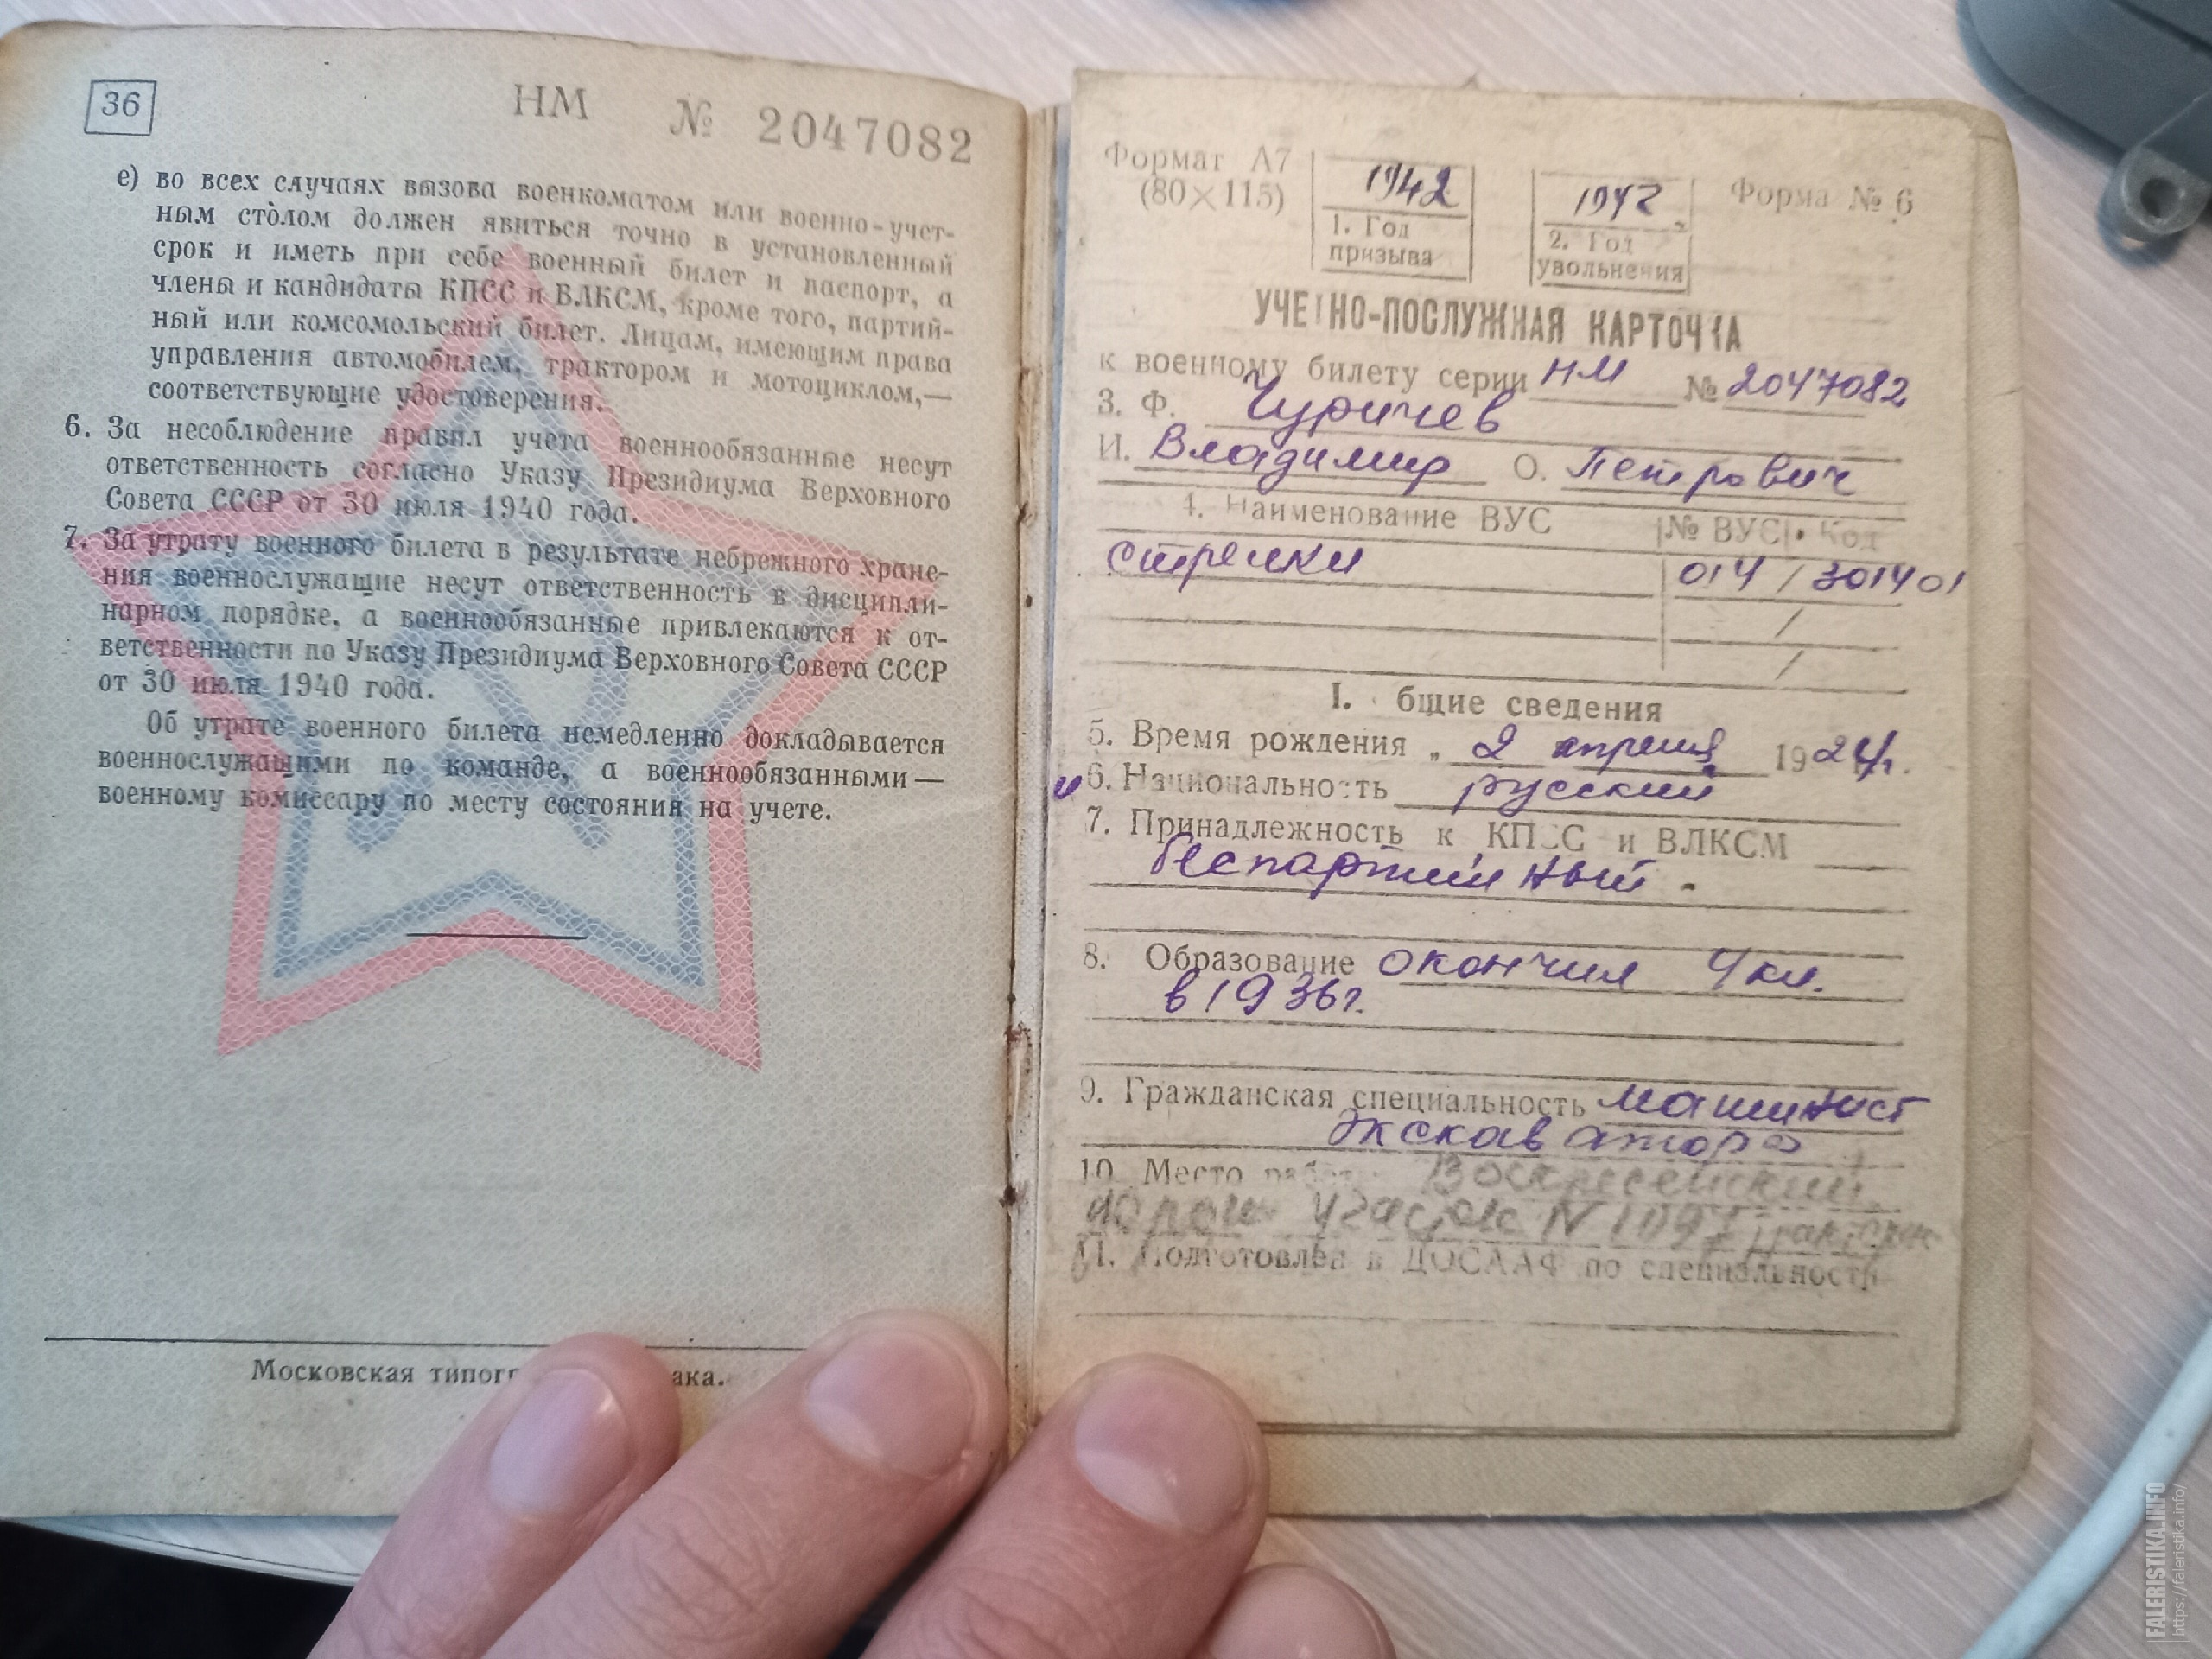 36
НМ № 2047082
е) во всех случаях вызова военкоматом или военно-учет-
ным столом должен явиться точно в установленный
срок и иметь при себе военный билет и паспорт, а
члены и кандидаты КПСС и ВЛКСМ, кроме того, партий-
ный или комсомольский билет. Лицам, имеющим права
управления автомобилем, трактором и мотоциклом,—
соответствующие удостоверения.
6. За несоблюдение правил учета военнообязанные несут
ответственность согласно Указу Президиума Верховного
Совета СССР от 30 июля 1940 года.
7. За утрату военного билета в результате небрежного хране-
ния военнослужащие несут ответственность в дисципли-
нарном порядке, а военнообязанные привлекаются к от-
ветственности по Указу Президиума Верховного Совета СССР
от 30 июля 1940 года.
Об утрате военного билета немедленно докладывается
военнослужащими по команде, а военнообязанными —
военному комиссару по месту состояния на учете.
Московская
Формат А7
(80×115)
1942
1. Год
призыва
1947
2. Год
увольнения
Форма № 6
УЧЕТНО-ПОСЛУЖНАЯ КАРТОЧКА
к военному билету серии НМ № 2047082
3. Ф. Чуричев
И. Владимир О. Петрович
4. Наименование ВУС № ВУС Код
стрелки 014 / 301401
/
/
I. бщие сведения
5. Время рождения „ 2 апреля 1924 г.
6. Национальность русский
7. Принадлежность к КПСС и ВЛКСМ
беспартийный.
8. Образование окончил 4 кл.
в 1936 г.
9. Гражданская специальность машинист
экскаватора
10. Место Воскресенский
участок N 1097
11. Подготовлен в ДОСААФ по специальности
FALERISTIKA.INFO
https://faleristika.info/